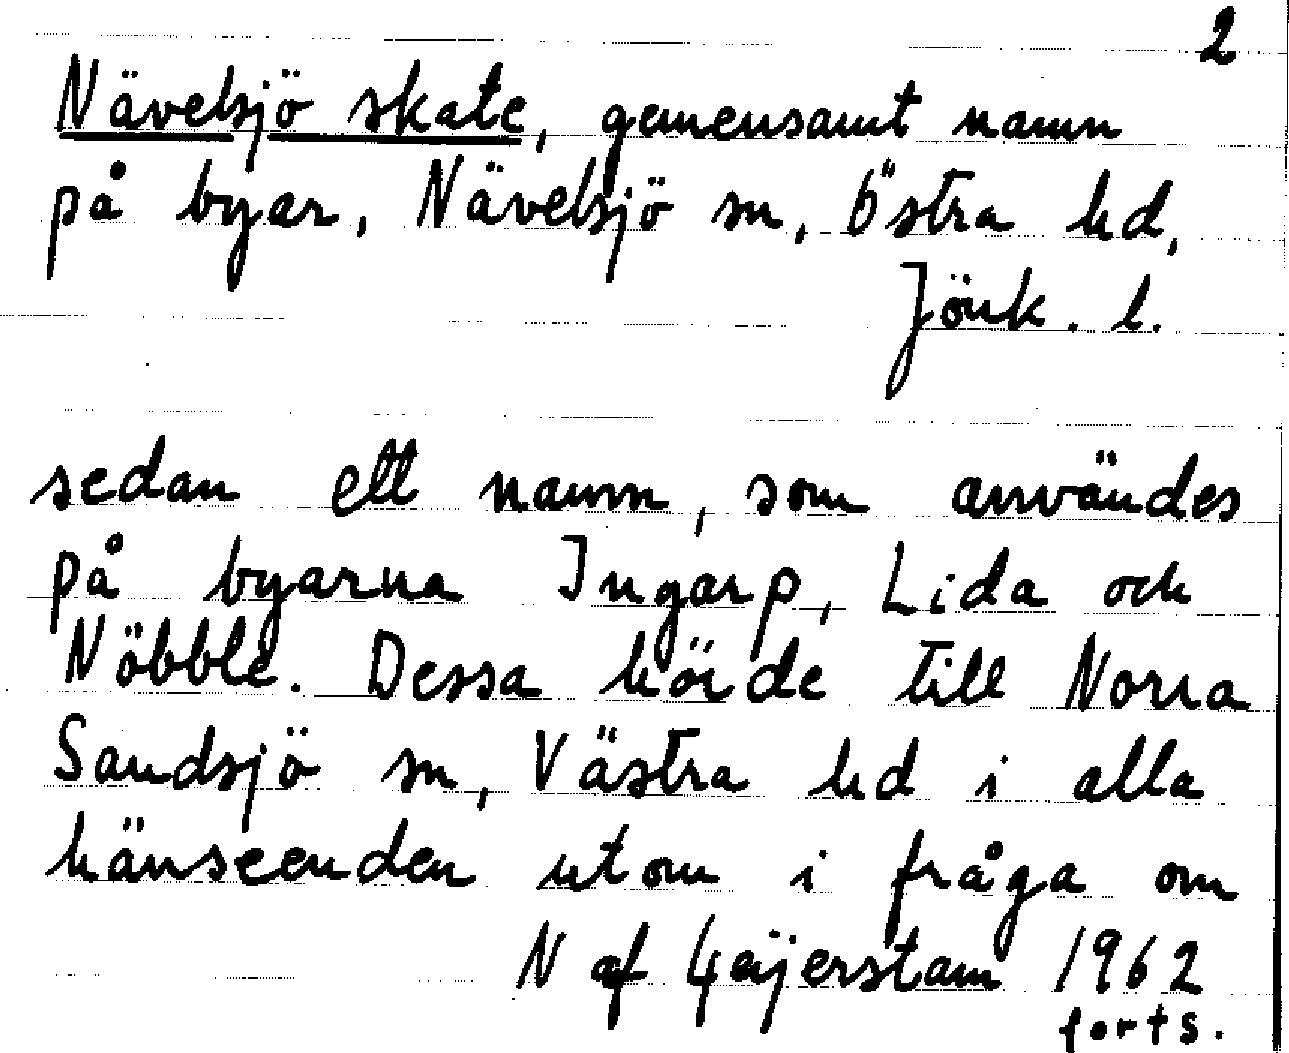 2
Nävelsjö skate, gemensamt namn
på byar, Nävelsjö sn, Östra hd,
Jönk. l.
sedan ett namn, som användes
på byarna Ingarp, Lida och
Nöbble. Dessa hörde till Norra
Sandsjö sn, Västra hd i alla
hänseenden utom i fråga om
N af Geijerstam 1962
forts.